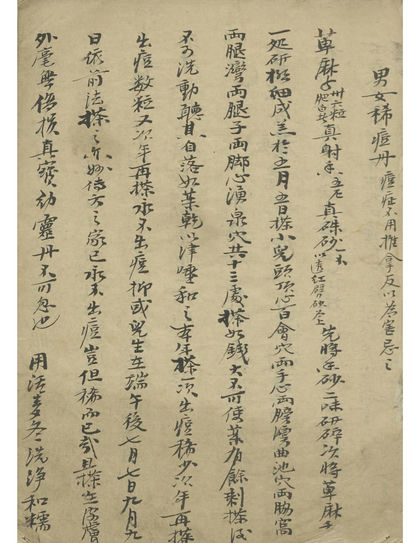 男女稀痘丹 痘症不用推拿反以為害忌之
萆麻子 卅六粒 肥白者 真射香 五厘 真硃砂 以透紅劈砂為上 先將香砂二味研碎次將萆麻子
一処研極細成羔於五月五日搽小兒頭頂心百會穴両手心両臂灣曲池穴両脇窩
両腿灣両腿子両脚心湧泉穴共十三處搽如錢大不可使藥有餘剩搽後
不可洗動聽其自落如藥乾以津唾和之本年搽一次出痘稀少次年再搽
出痘数粒又次年再搽永不出痘抑或兒生在端午後七月七日九月九
日依前法搽之亦妙傳方之家已永不出痘豈但稀而已哉且搽在皮膚
外毫無傷損真寳幼靈丹不可忽也 用活麦冬洗净和糯